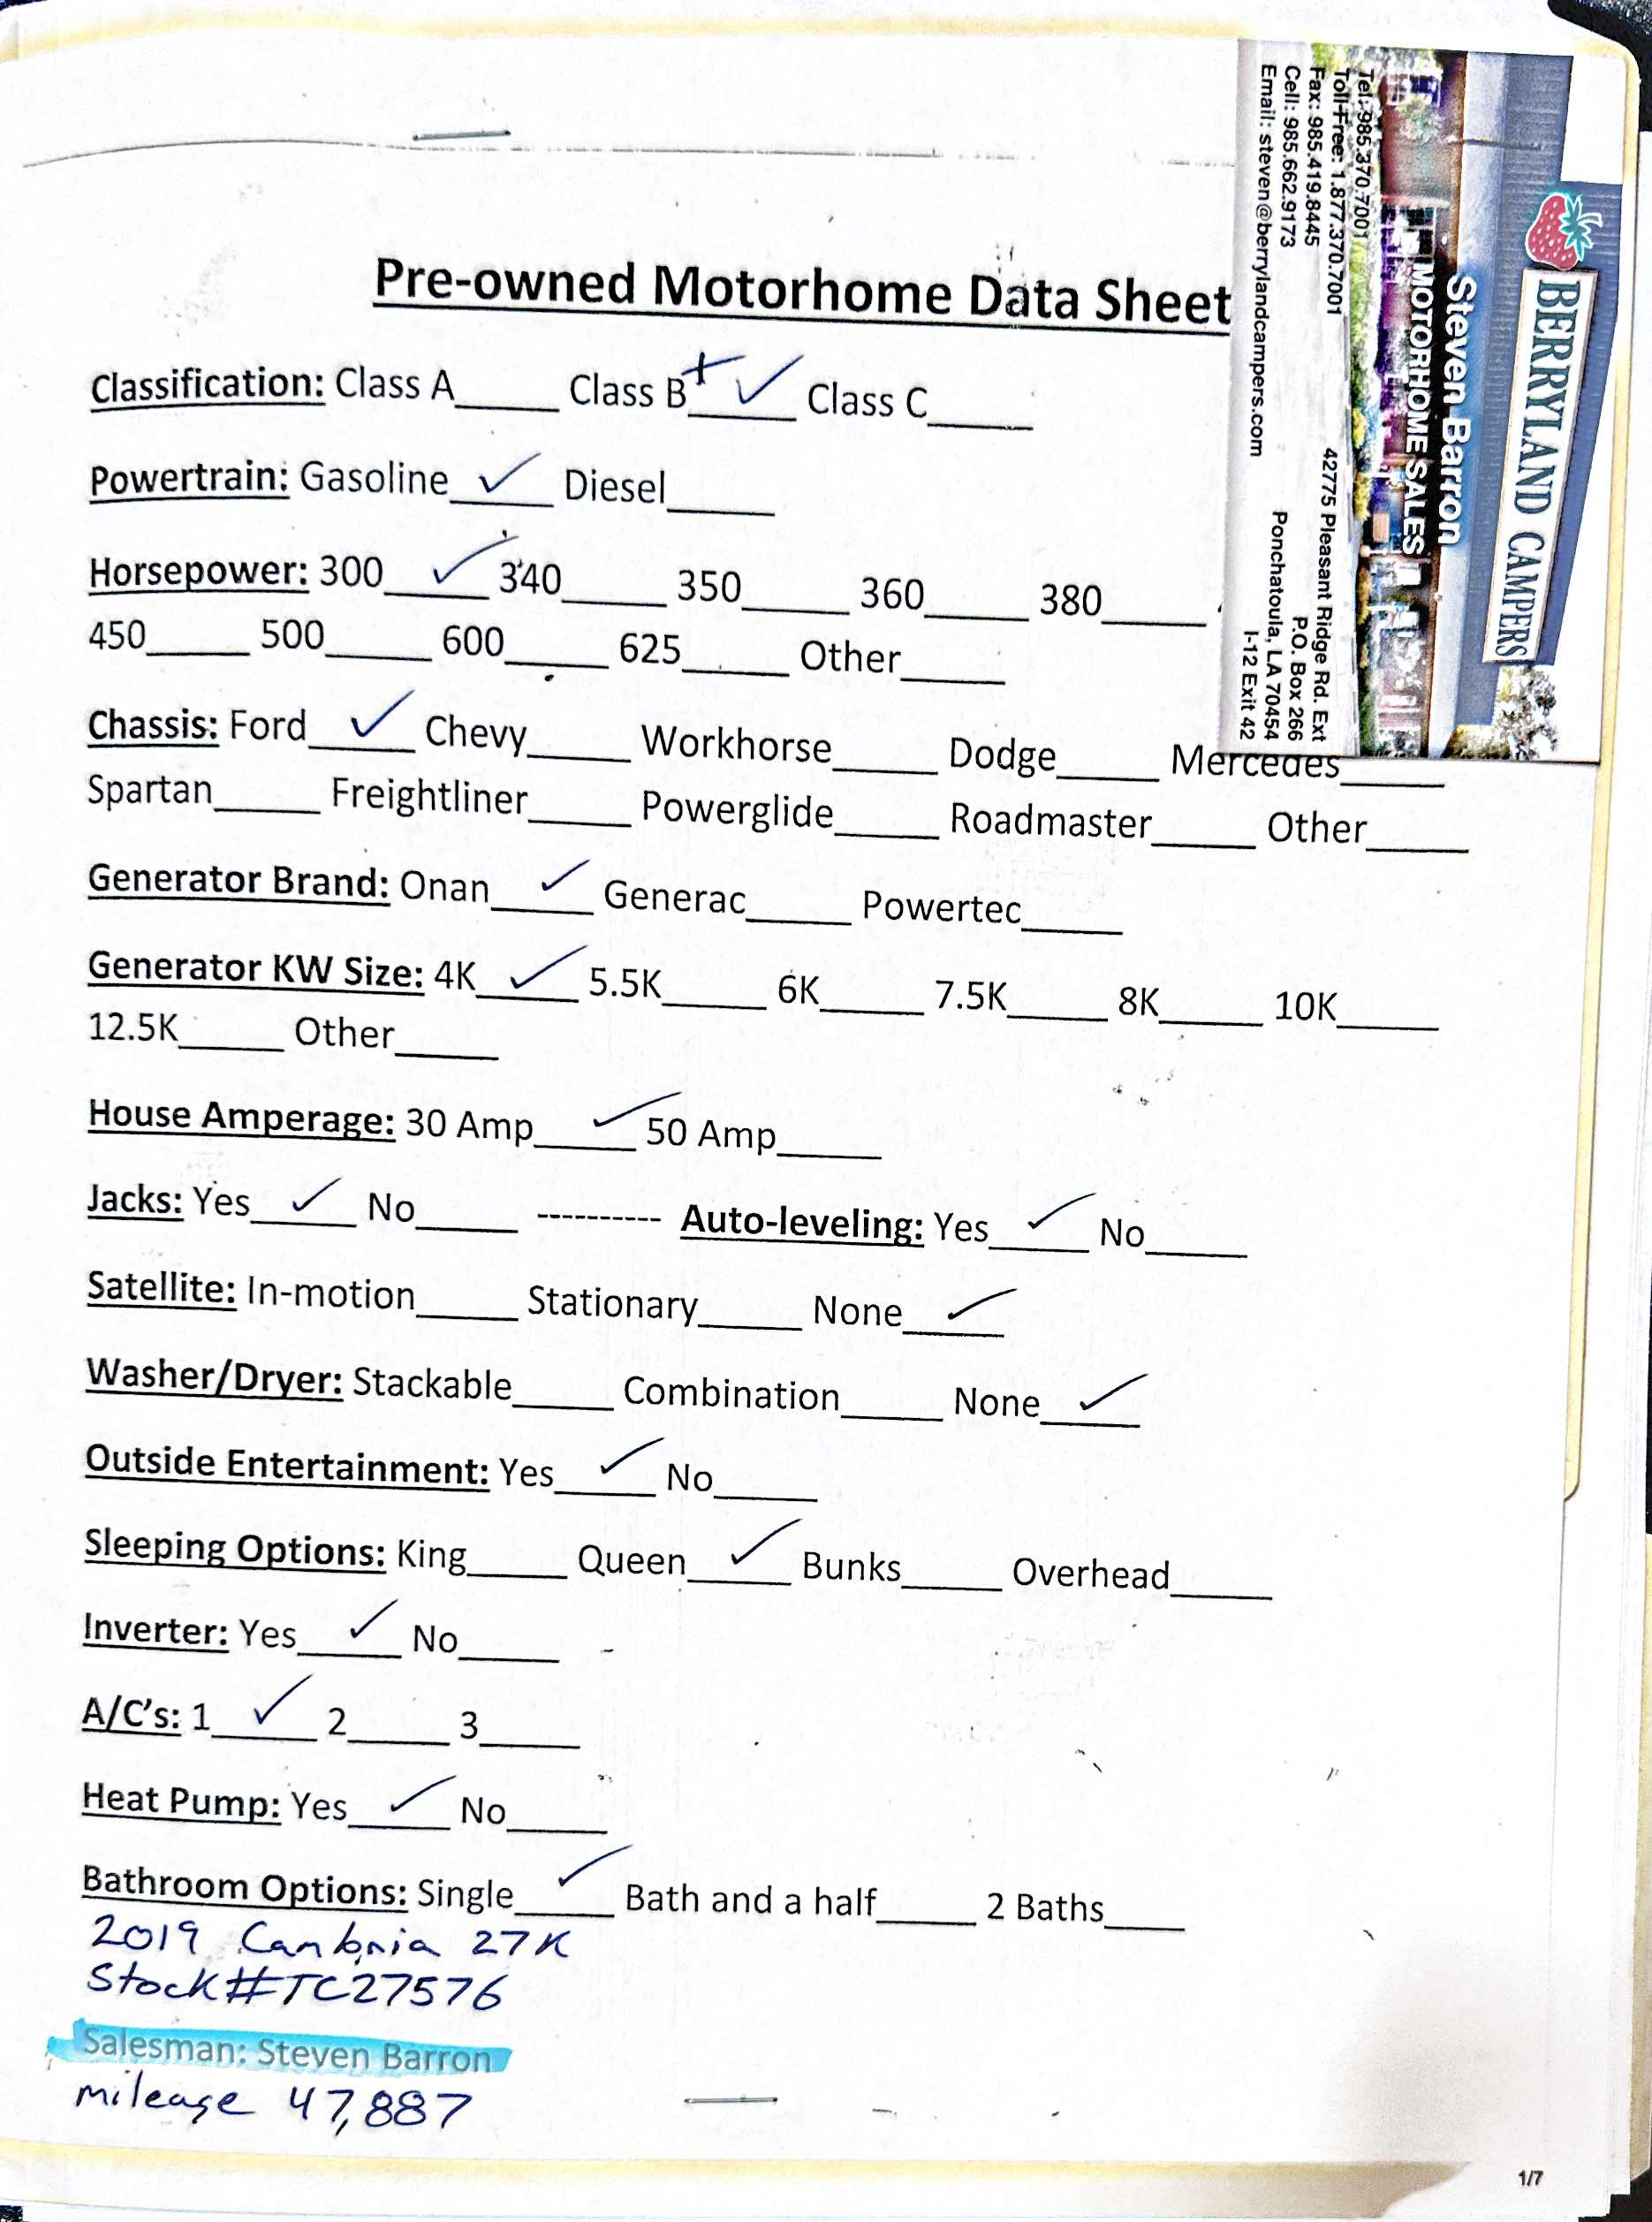 Pre-owned Motorhome Data Sheet
Classification: Class A_____ Class B+__✓__ Class C_____
Powertrain: Gasoline__✓__ Diesel_____
Horsepower: 300__✓__ 340_____ 350_____ 360_____ 380_____
450_____ 500_____ 600_____ 625_____ Other_____
Chassis: Ford__✓__ Chevy_____ Workhorse_____ Dodge_____ Mercedes_____
Spartan_____ Freightliner_____ Powerglide_____ Roadmaster_____ Other_____
Generator Brand: Onan__✓__ Generac_____ Powertec_____
Generator KW Size: 4K__✓__ 5.5K_____ 6K_____ 7.5K_____ 8K_____ 10K_____
12.5K_____ Other_____
House Amperage: 30 Amp__✓__ 50 Amp_____
Jacks: Yes__✓__ No_____ ---------- Auto-leveling: Yes__✓__ No_____
Satellite: In-motion_____ Stationary_____ None__✓__
Washer/Dryer: Stackable_____ Combination_____ None__✓__
Outside Entertainment: Yes__✓__ No_____
Sleeping Options: King_____ Queen__✓__ Bunks_____ Overhead_____
Inverter: Yes__✓__ No_____
A/C's: 1__✓__ 2_____ 3_____
Heat Pump: Yes__✓__ No_____
Bathroom Options: Single__✓__ Bath and a half_____ 2 Baths____
2019 Cambria 27K
Stock#TC27576
Salesman: Steven Barron
mileage 47,887
1/7
BERRYLAND CAMPERS
Steven Barron
MOTORHOME SALES
Tel: 985.370.7001
Toll-Free: 1.877.370.7001
Fax: 985.419.8445
Cell: 985.662.9173
Email: steven@berrylandcampers.com
42775 Pleasant Ridge Rd. Ext
P.O. Box 266
Ponchatoula, LA 70454
I-12 Exit 42